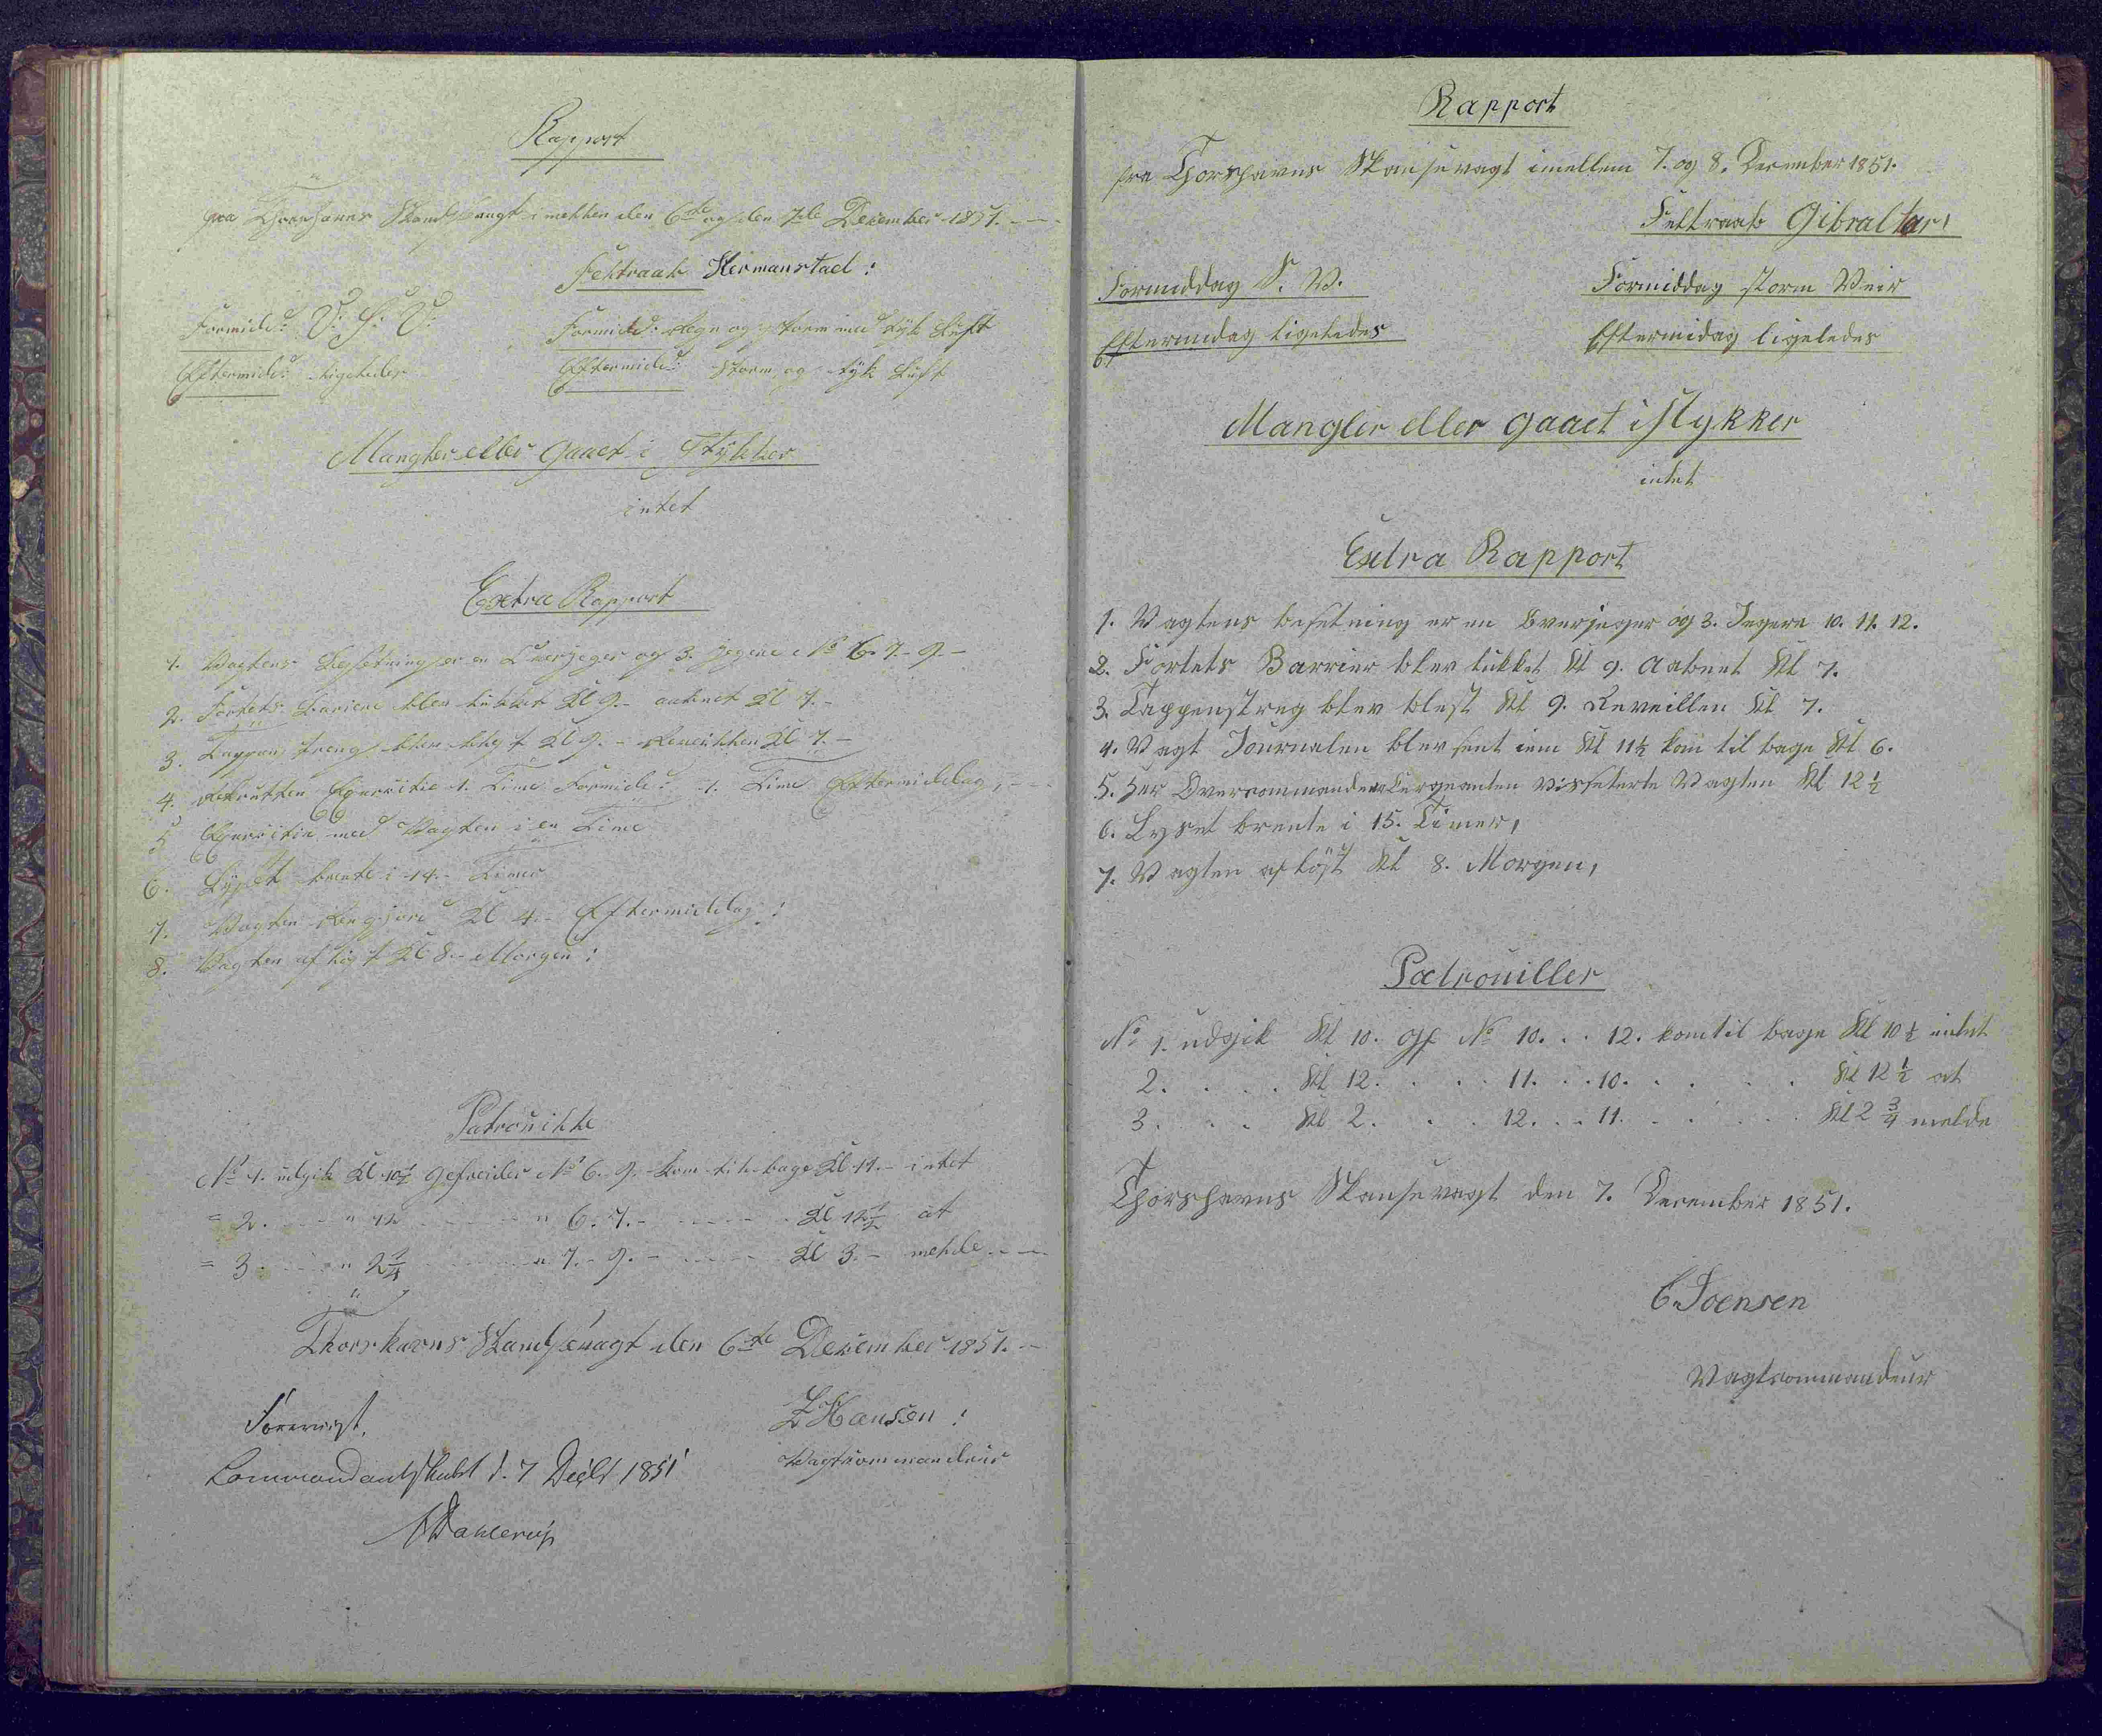 Rapport
fra Thorshavns Skandsevagt imellem den 6te og den 7de December 1851.
Feltraab Hermanstad:
Formidd: V. S. V.
Formidd: Regn og storm med tyk Luft
Eftermidd: ligeledes
Eftermidd: Storm og tyk Luft
Mangler eller gaaet i Stykker
intet
Extra Rapport
1. Vagtens Besetning er en Overjeger og 3. Jegere No 6. 7. 9.
2. Fortets Bariere blev lukket Kl 9. aabnet Kl 7.
3. Tappenstreng blev blest Kl 9. Reveillen Kl 7.
4. Rekrutten Exersitie 1. Time Formidd: 1. Time Eftermiddag,
5 Exersitie med Vagten i en Time
6. Lyset brente i 14. Timer
7. Vagten Rengjord Kl 4. Eftermiddag:
8. Vagten afløst Kl 8. Morgen:
Patrouille
No 1. udgik Kl 10½ gefreider No 6. 9. kom tilbage Kl 11. intet
= 2. " 12 " 6. 7. Kl 12½ at
= 3. " 2¾ " 7. 9. Kl 3. melde
Thorshavns Skandsevagt den 6te December 1851.
Z Hansen:
Vagtcommandeur
Foreviist,
Commandantskabet d. 7 Decbr 1851
Dahlerup
Rapport
fra Thorshavns Skansevagt imellem 7. og 8. December 1851.
Feltraab Gibraltar,
Formiddag S. V.
Formiddag storm Veir
Eftermidag ligeledes
Eftermidag ligeledes
Mangler eller gaaet istykker
intet
Extra Rapport
1. Vagtens besetning er en Overjeger og 3. Jegere 10. 11. 12.
2. Fortets Barrier blev lukket Kl 9. Aabnet Kl 7.
3. Tappenstreg blev blest Kl 9. Reveillen Kl 7.
4. Vagt Journalen blev sent iem Kl 11½ kom til bage Kl 6.
5. Her Overcommander Sergeanten Visseterte Vagten Kl 12½
6. Lyset brente i 15. Timer,
7. Vagten afløst Kl 8. Morgen,
Patrouiller
No 1. udgik Kl 10. gf No 10. . . 12. kom til bage Kl 10½ intet
2. . . . Kl 12. . . . 11. . . 10. . . . . . Kl 12½ at
3. . . . Kl 2. . . . 12. . . 11. . . . . . Kl 2¾ melde
Thorshavns Skansevagt den 7. December 1851.
C. Joensen
Vagtcommandeur